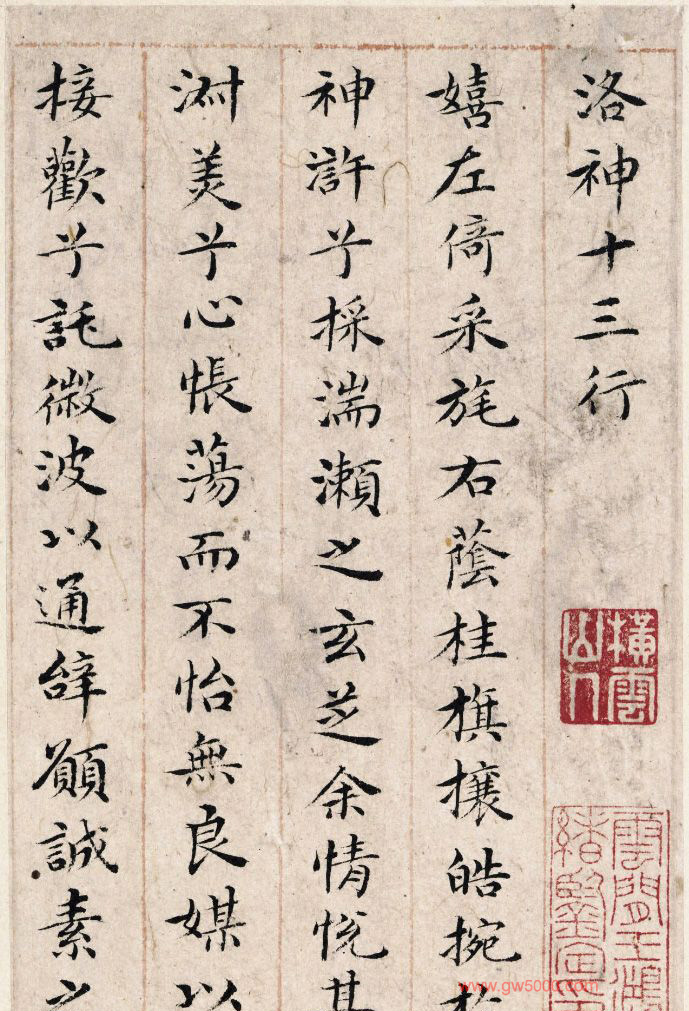 洛神十三行
嬉左倚采旄右蔭桂旗攘皓捥於
神許兮採湍瀨之玄芝余情悅其
淑美兮心悵蕩而不怡無良媒以
接歡兮託微波以通辭願誠素之
橫雲山人
雲間王鴻
緒鑒定印
www.gw5000.com